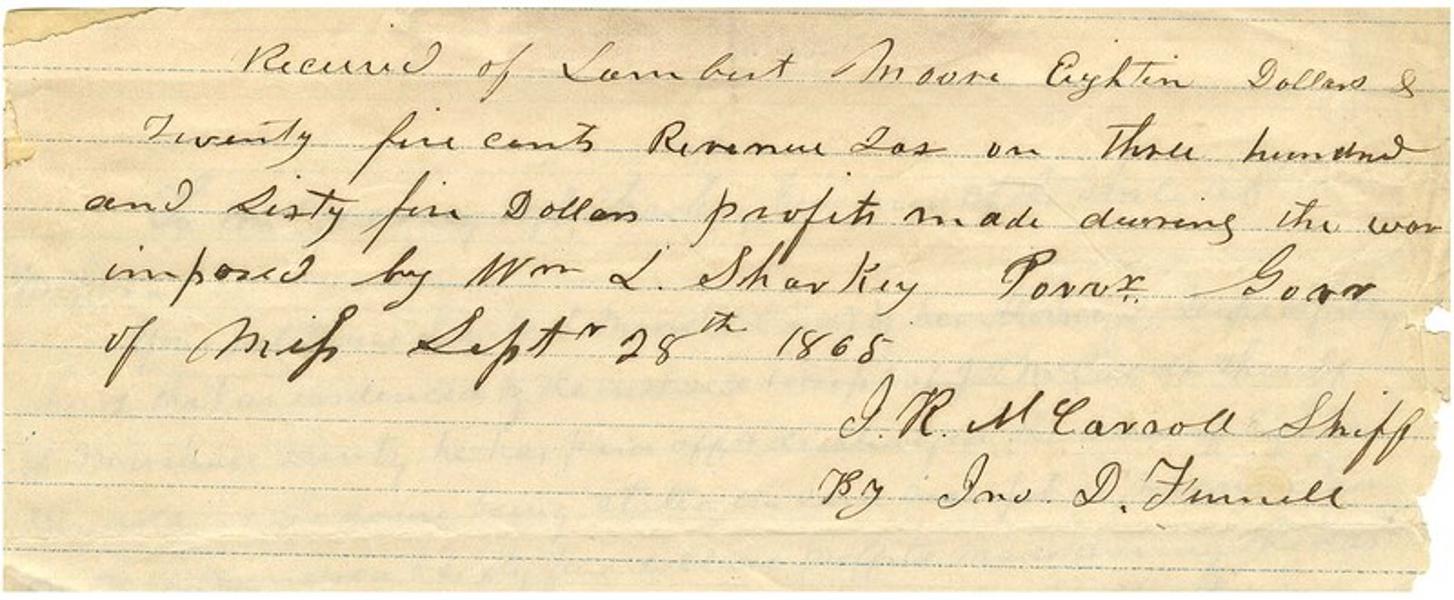 Received of Lambert Moore Eightin Dollars &
Twenty five cents Revenue Tax on three hundred
and Sixty five Dollars profits made during the war
imposed by Wm L. Sharkey Provr. Govr
of Miss Septr 28th 1865
J. R. McCarroll Shiff
By Jno. D. Finnell